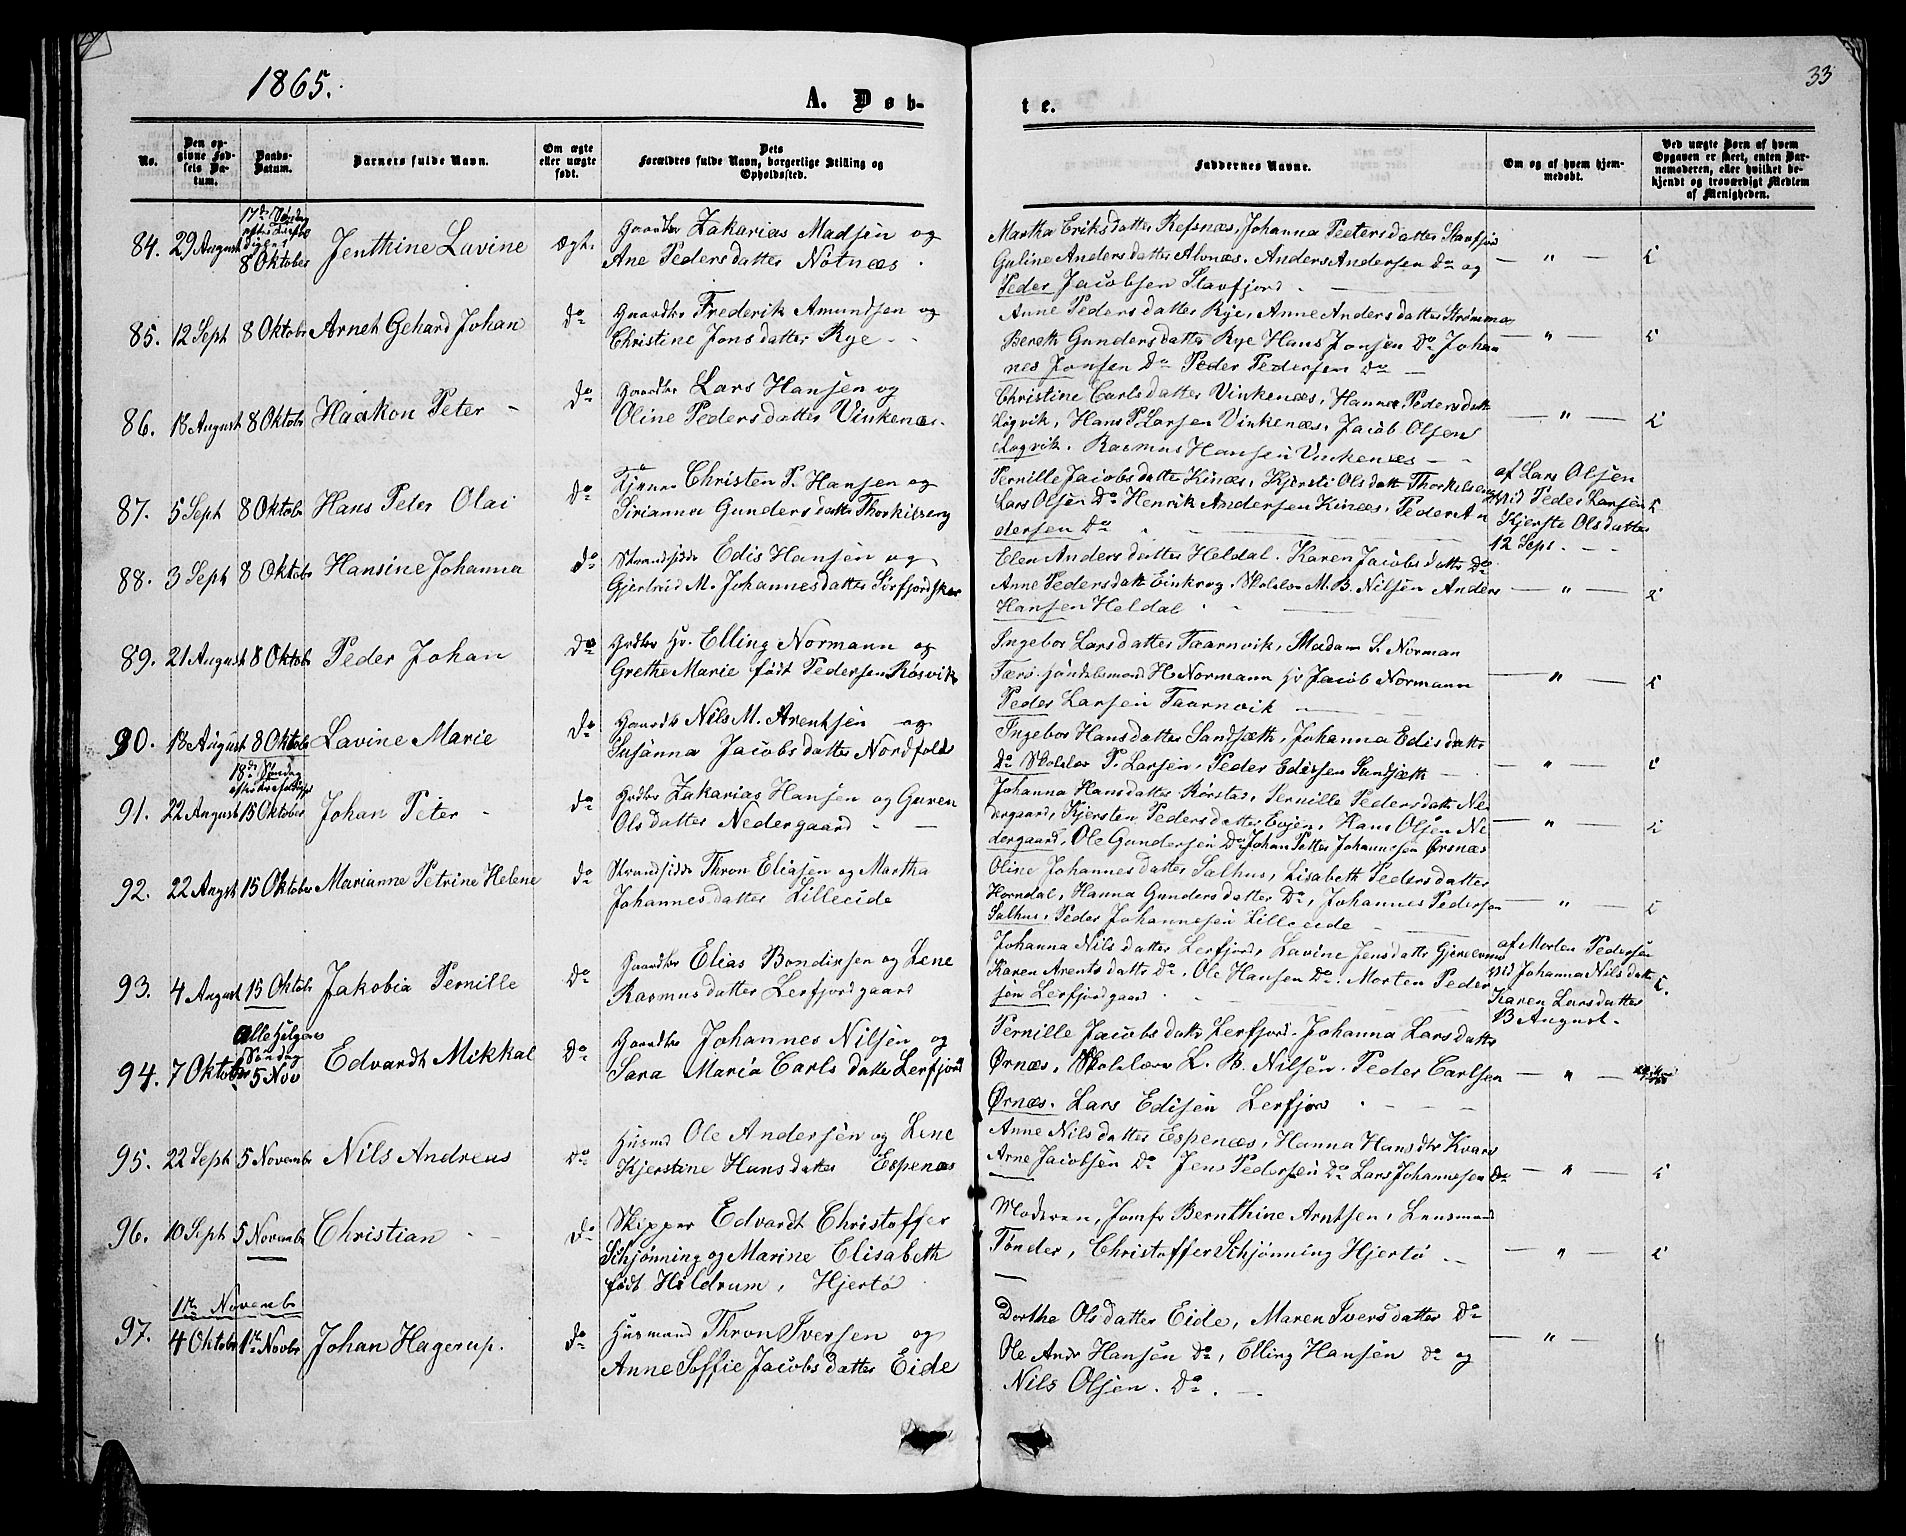 1865.
33
A. Døb-
te.
No.
Den op-
givne Fød-
sels Da-
tum.
Daabs-
Datum.
Barnets fulde Navn.
Om ægte
eller uægte
født.
Dets
Forældres fulde Navn, borgerlige Stilling og
Opholdssted.
Faddernes Navne.
Om og af hvem hjem-
medøbt.
Ved uægte Børn af hvem
Opgaven er skeet, enten Bar-
nemoderen, eller hvilket be-
kjendt og troværdigt Medlem
af Menigheden.
17de Søndag
84. 29 August 8 Oktober Jenthine Lavine ægt. Gaardbr Zakarias Madsen og
Ane Pedersdatter Nötnæs
Martha Eriksdatter Refsnæs, Johanna Petersdatter Stavfjor
Guline Andersdatter Alvnæs. Anders Andersen Do og
Peder Jacobsen Stavfjord — " —
85. 12 Sept 8 Oktobr Arnet Gehard Johan Do Gaardbr Frederik Amundsen og
Christine Jonsdatter Rye
Anne Pedersdatter Rye, Anne Andersdatter Strømmo
Bereth Gundersdatter Rye Hans Jonsen Do Johan
nes Jonsen Do Peder Pedersen Do — " —
86. 13 August 8 Oktobr Haakon Peter Do Gaardbr Lars Hansen og
Oline Pedersdatter Vinkenæs
Christine Carlsdatter Vinkenæs, Hanna Pedersdatt
Løgvik, Hans P Larsen Vinkenæs, Jacob Olsen
Løgvik. Rasmus Hansen Vinkenæs — " —
87. 5 Sept 8 Oktobr Hans Peter Olai Do Christen P. Hansen og
Sirianna Gundersdatter Thorkilseng
Pernille Jacobsdatte Kinæs, Kjersti Olsdatt Thorkelseng
Lars Olsen Do Henrik Andersen Kinæs, Peder An
dersen Do
af Lars Olsen
vid Peder Larsen
Kjerste Olsdatter
12 Sept.
88. 3 Sept 8 Oktobr Hansine Johanna Do Strandsidder Edis Hansen og
Gjertrud M. Johannesdatter Sørfjordskar
Elen Andersdatter Heldal. Karen Jacobsdatte Do
Anne Pedersdatt Einkrog, Skolelær M. B. Nilsen Anders
Hansen Heldal — " —
89. 21 August 8 Oktobr Peder Johan Do Grdbr Hr. Elling Normann og
Grethe Marie født Pedersen Røsvik
Ingebor Larsdatter Taarnvik, Madam S. Norman
H Normann Hr Jacob Normann
Peder Larsen Taarnvik — " —
90. 13 August 8 Oktobr Lavine Marie Do Gaardb Nils M. Arentsen og
Susanna Jacobsdatter Nordfold
Ingebor Hansdatter Sandsæth, Johanna Edisdatte
Do Skolelær P. Larsen, Peder Edissen Sandsæth — " —
18de Søndag
91. 22 August 15 Oktober Johan Peter Do Grdbr Zakarias Hansen og Guren
Olsdatter Nedergaard
Johanna Hansdatter Rørstad, Pernille Pedersdatt Ne
dergaard, Kjersten Pedersdatter Evjen, Hans Olsen Ne
dergaard, Ole Gundersen Do Johan Petter Johannesen Ørsnæs — " —
92. 22 Augst 15 Oktober Marianne Petrine Helene Do Strandsidde Thron Eliasen og Martha
Johannesdatter Lilleeide
Oline Johannesdatter Salhus, Lisabeth Pedersdatter
Horndal, Hanna Gundersdatter Do, Johannes Pedersen
Salhus, Peder Johannesen Lilleeide — " —
93. 4 August 15 Oktobr Jakobia Pernille Do Gaardbr Elias Bendiksen og Lene
Rasmusdatter Lerfjordgaard
Johanna Nilsdatter Lerfjord, Lavine Jensdatte
Karen Arentsdatte Do, Ole Hansen Do Morten Peder
sen Lerfjordgaard
af Morten Pedersen
vid Johanna Nilsdatte
Karen Larsdatter
13 August.
Allehelgens
Søndag
94. 7 Oktober 5 Nov Edvardt Mikkal Do Gaardbr Johannes Nilsen og
Sara Maria Carlsdatte Lerfjord
Pernille Jacobsdatte Lerfjord. Johanna Larsdatter
Ørnæs, Skolelær L. B. Nilsen. Peder Carlsen
Ørnæs. Lars Edisen Lerfjor — " —
95. 22 Sept 5 Novembr Nils Andreas Do Husmd Ole Andersen og Lene
Kjerstine Hansdatter Espenæs
Anne Nilsdatter Espenæs, Hanna Hansdtr Kvars
Arne Jacobsen Do Jens Pedersen Do Lars Johannesen Do — " —
96. 10 Sept 5 Novembr Christian Do Skipper Edvardt Christoffer
Schjønning og Marine Elisabeth
født Høldrum, Hjertø
Moderen, Jomfr Bernthine Arntsen, Lensmand
Tønder, Christoffer Schjønning Hjertö — " —
1te Novembr
97. 4 Oktobr 1te Novbr Johan Hagerup. Do Husmand Thron Iversen og
Anne Soffie Jacobsdatter Eide
Dorthe Olsdatter Eide, Maren Iversdatter Do
Ole Andr Hansen Do, Elling Hansen Do og
Nils Olsen. Do. — " —